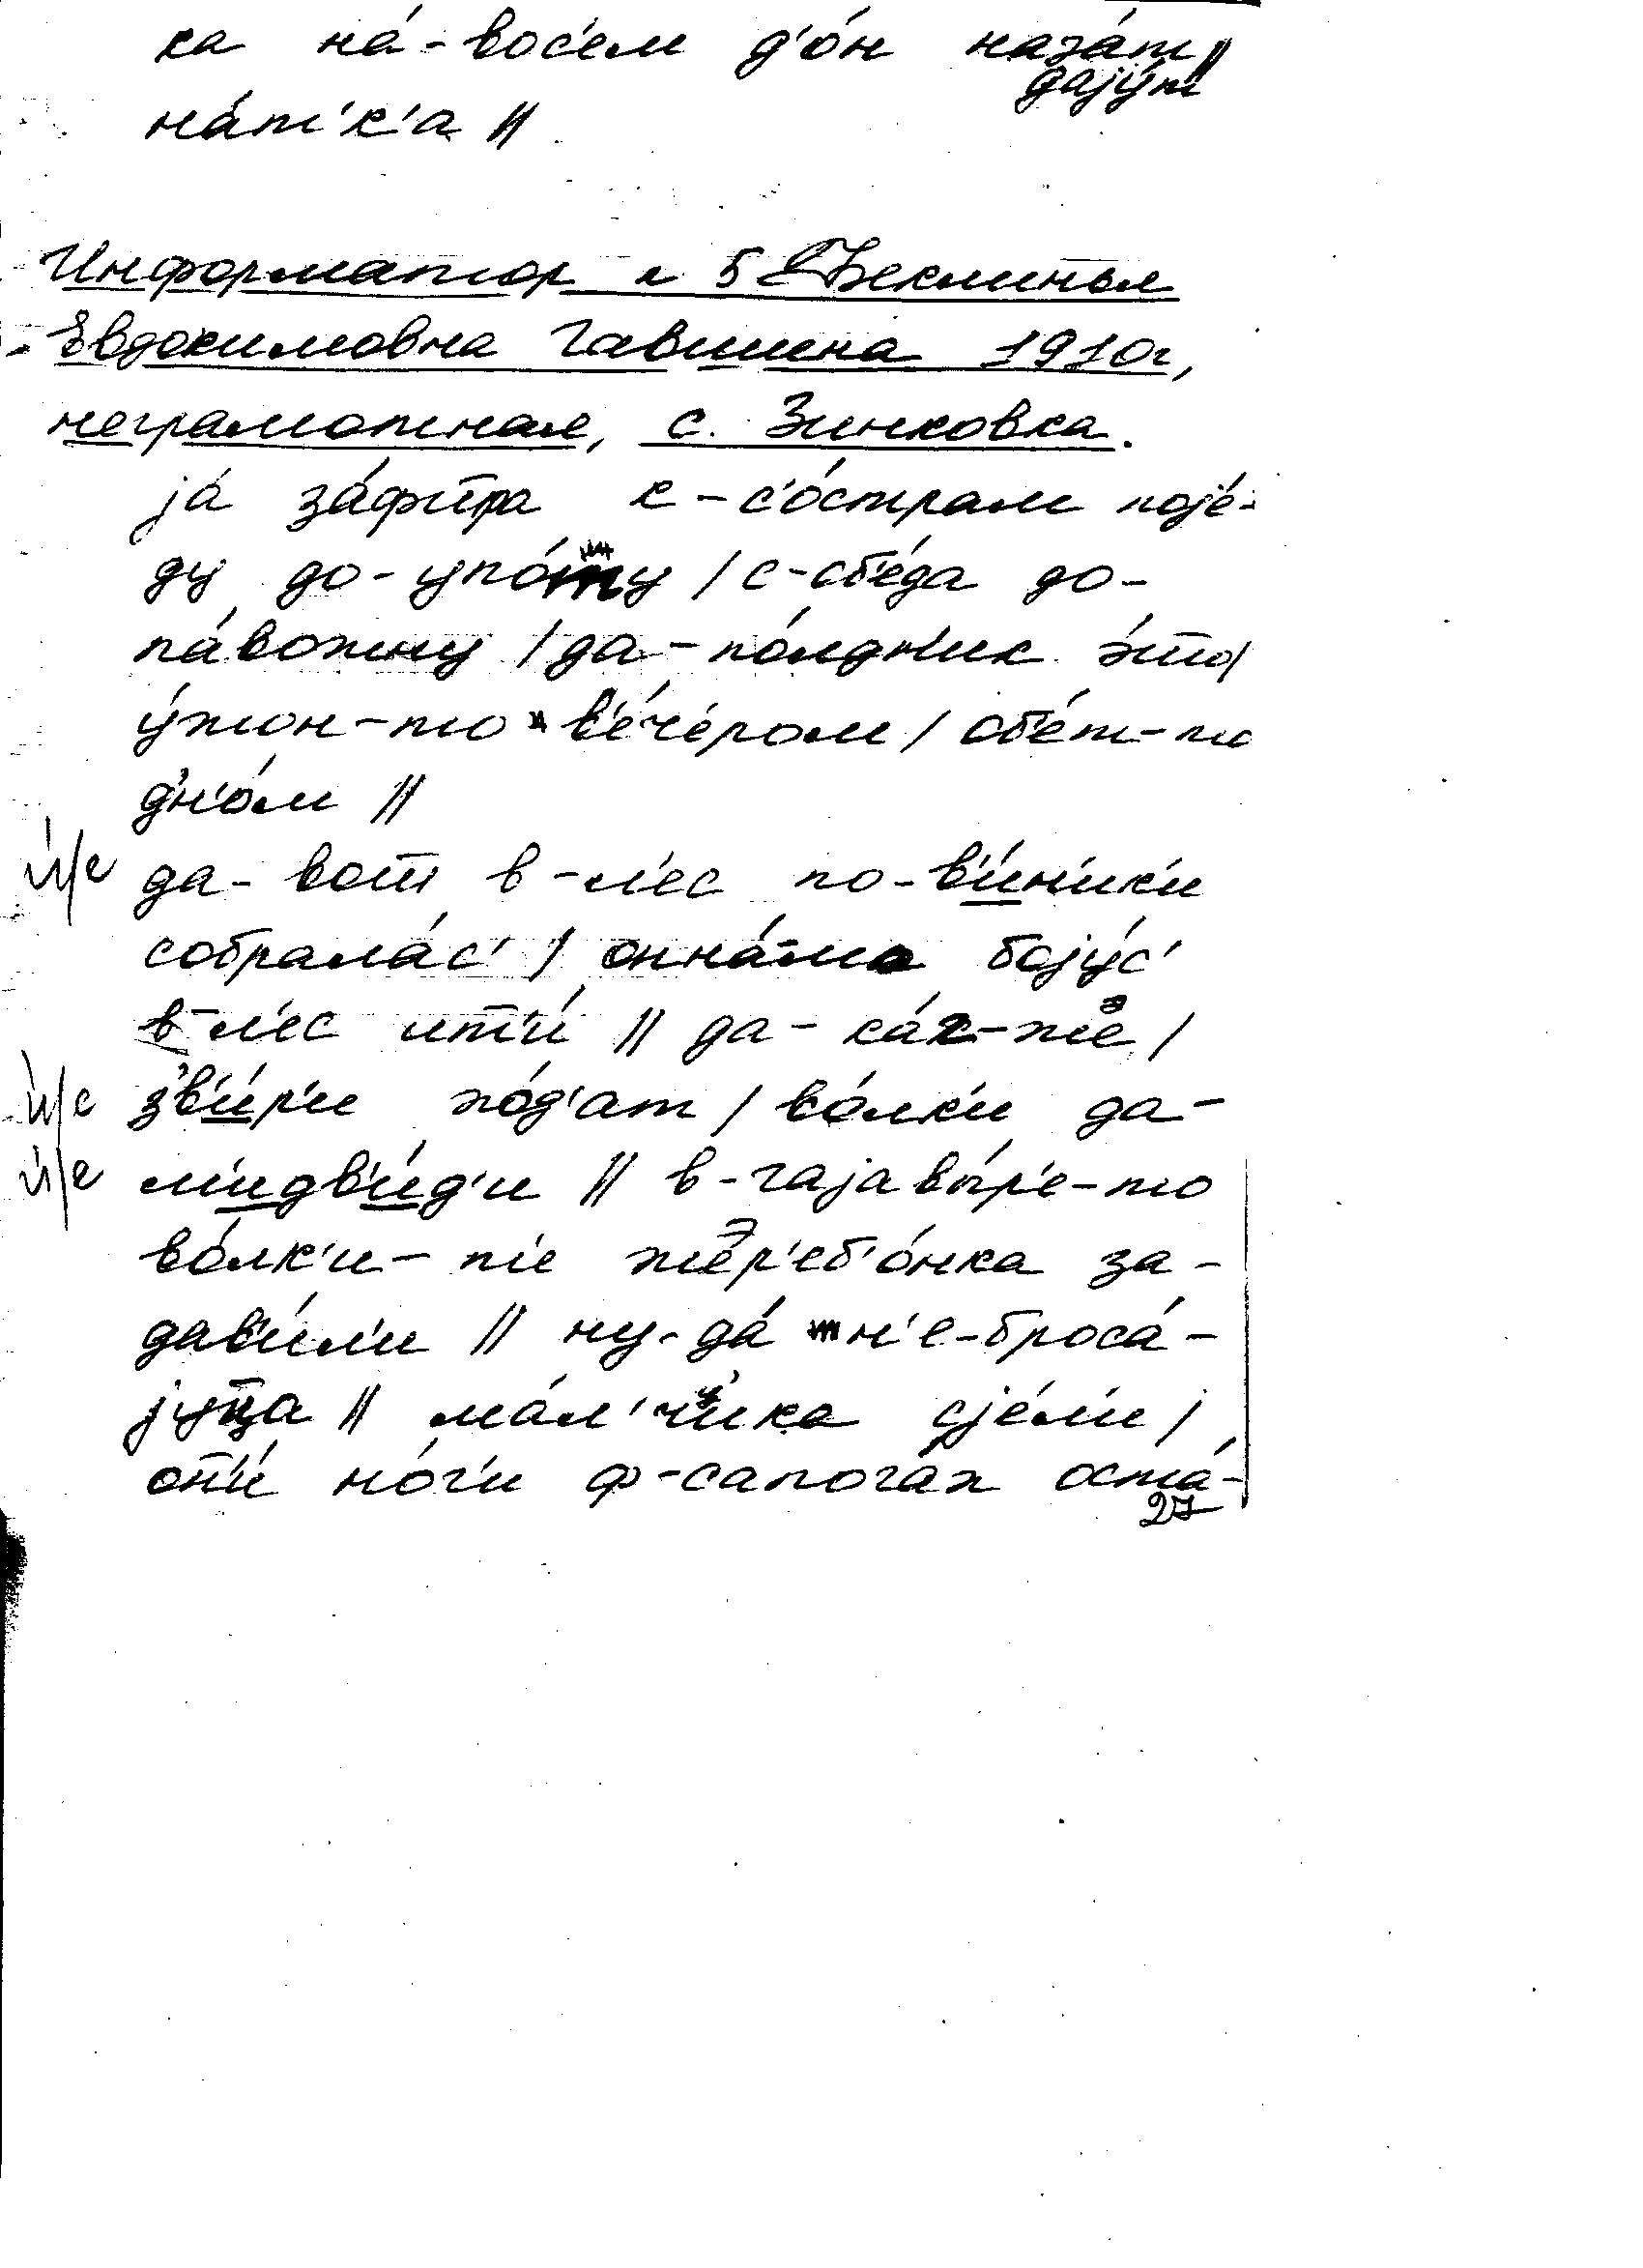 ка на́-вос'ем д'о́н наза́т ||
дају́т
на́т'к'а ||
Информатор № 5 Феклинья
Евдокимовна Гавшина 1910г,
неграмотная, с. Зинковка.
ја́ за́фтра к-с'о́страм поје́-
ду до- /с-об'е́да до-
/да-по́лдн'ик э́то/
у́жон-то в'е́ч'ером/ об'е́т-то
дн'о́м ||
и́/е да-вот в-л'ес по-в'и́н'ик'и
собрала́с' / онна́ бојус'
в-л'ес ит'и́ || да-ка́к-жэ /
и́/е зв'и́р'и хо́д'ат / во́лк'и да-
и́/е м'идв'и́д'и || в-гајавы́р'е-то
во́лк'и-т'е жэр'еб'о́нка за-
дав'и́л'и || ну-да́ н'е-броса́-
јуца || ма́л'чика сје́л'и /
от'и́ но́г'и ф-сапога́х оста́-
27